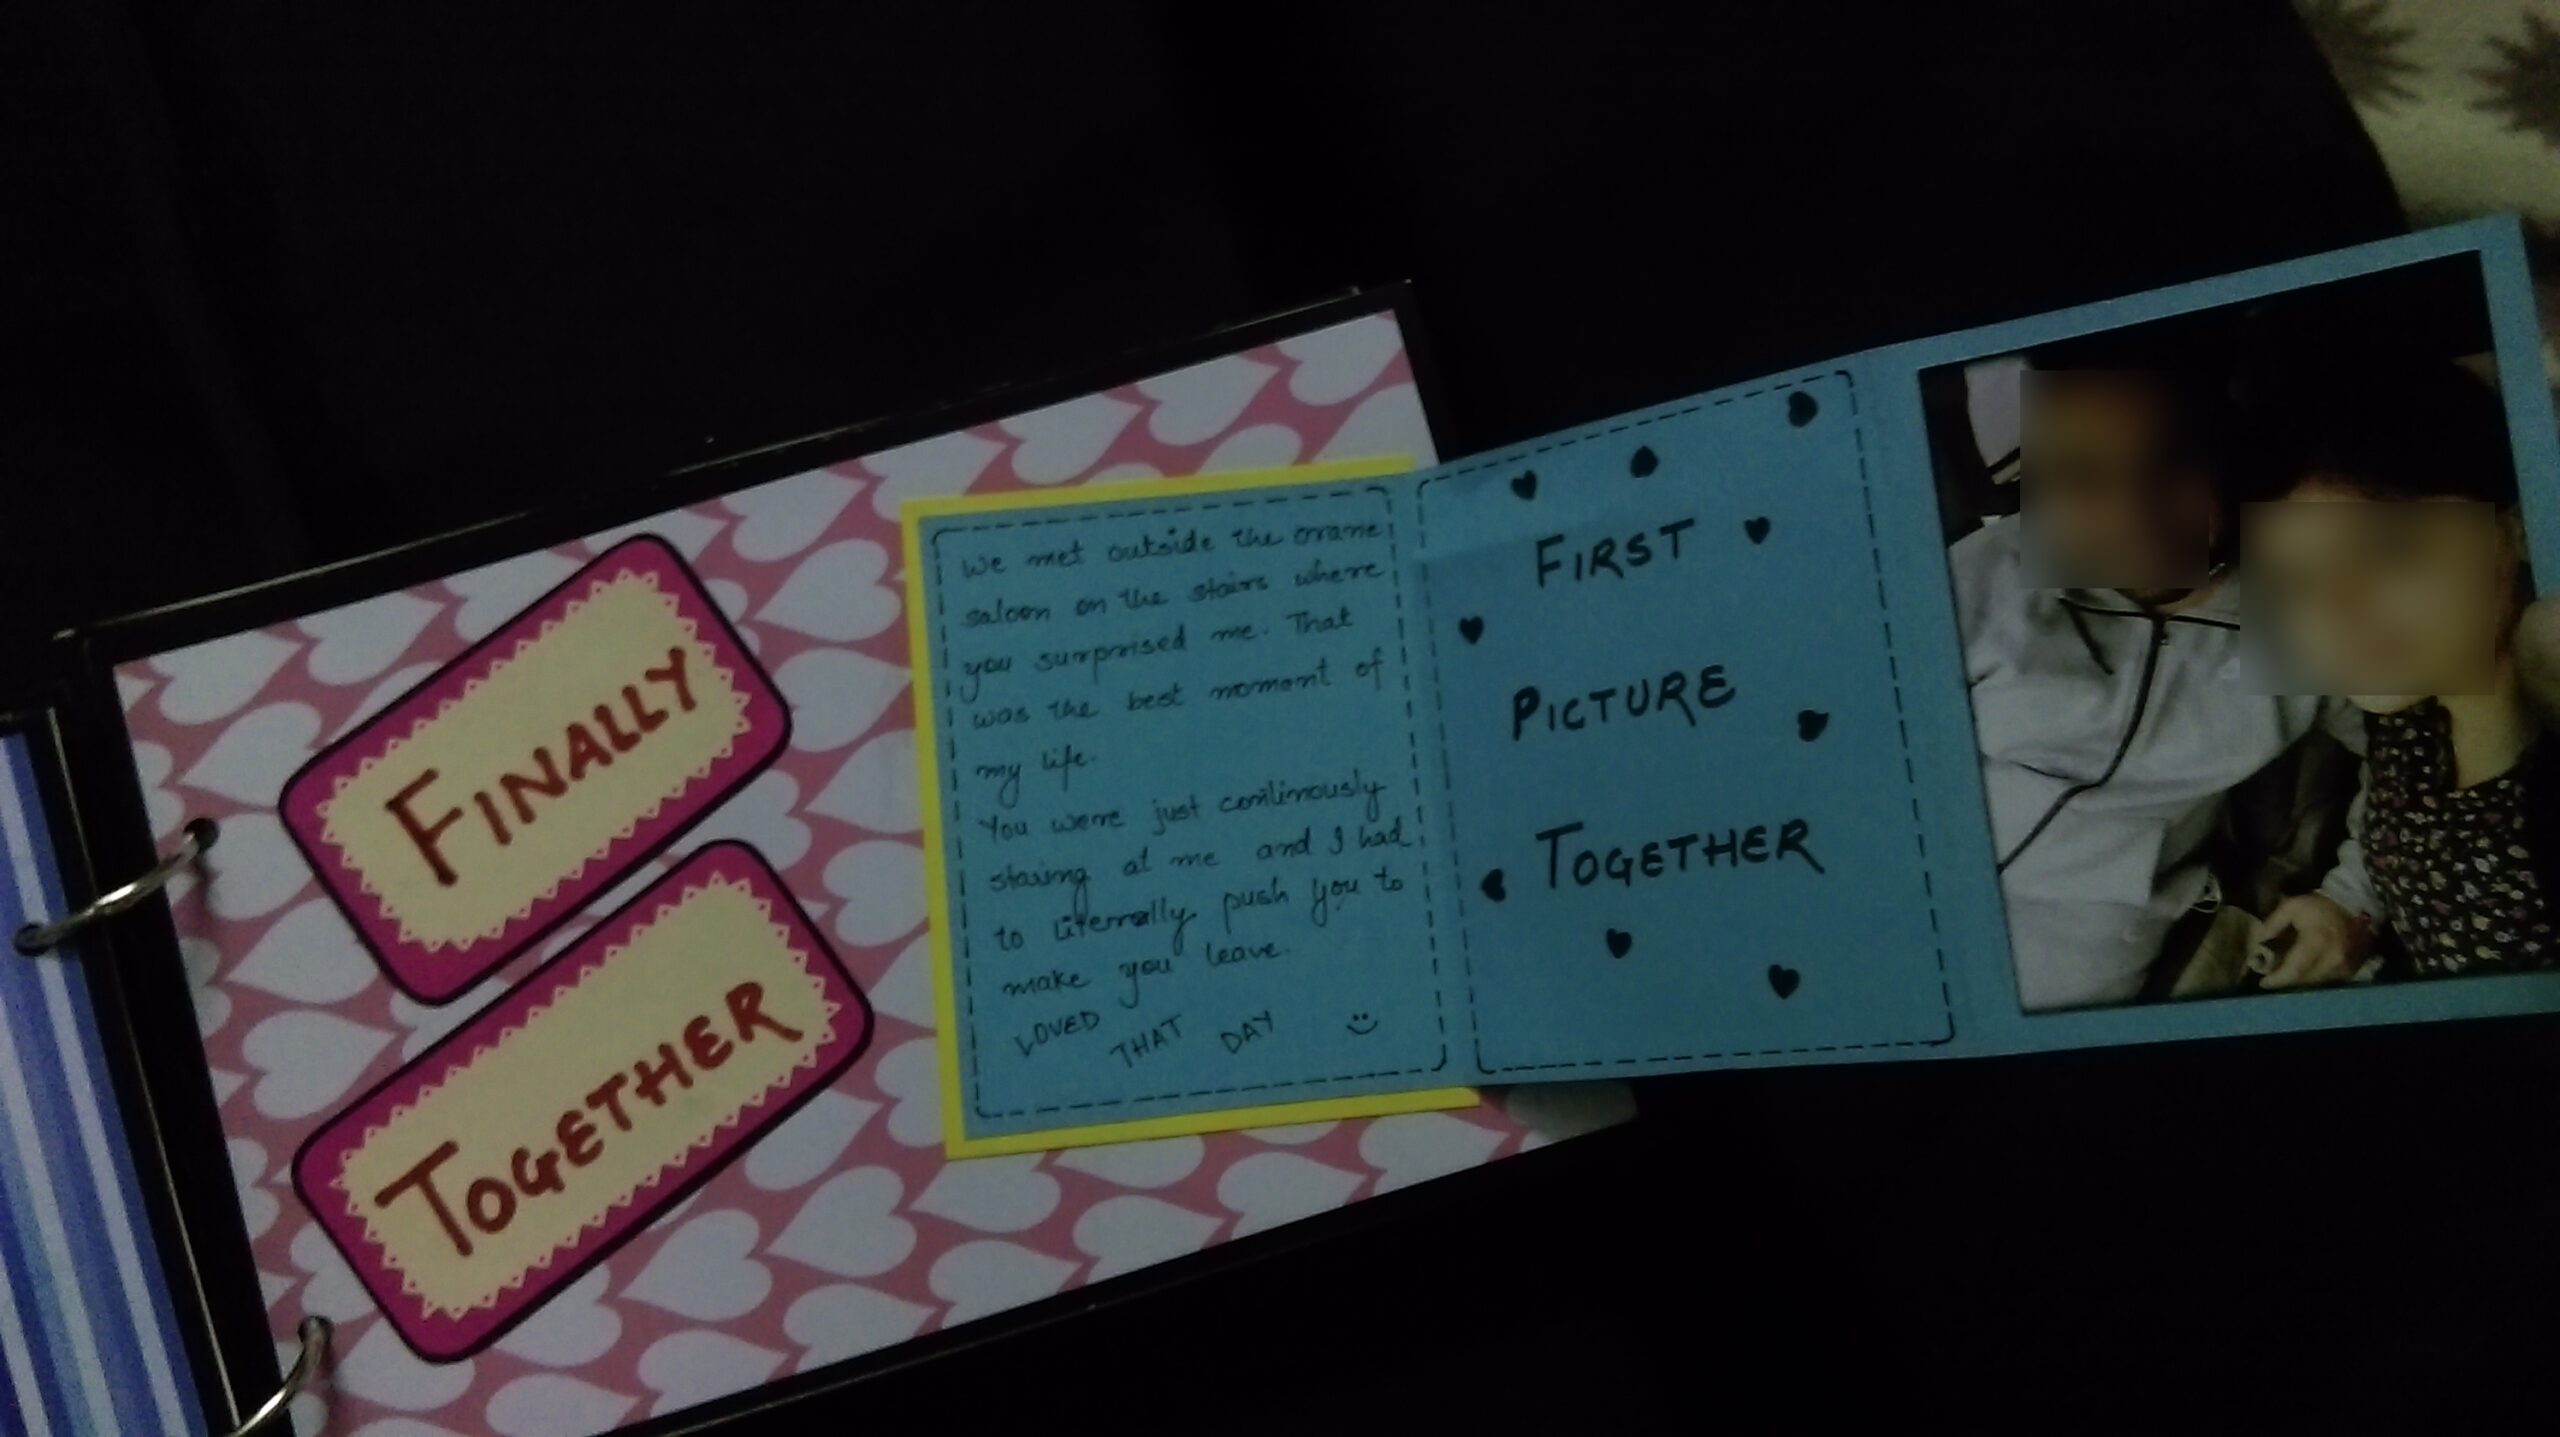 FINALLY
TOGETHER
We met outside the
saloon on the stairs where
you surprised me. That
was the best moment of
my life.
You were just continously
staring at me and I had
to literally push you to
make you leave.
LOVED THAT DAY
FIRST
PICTURE
TOGETHER